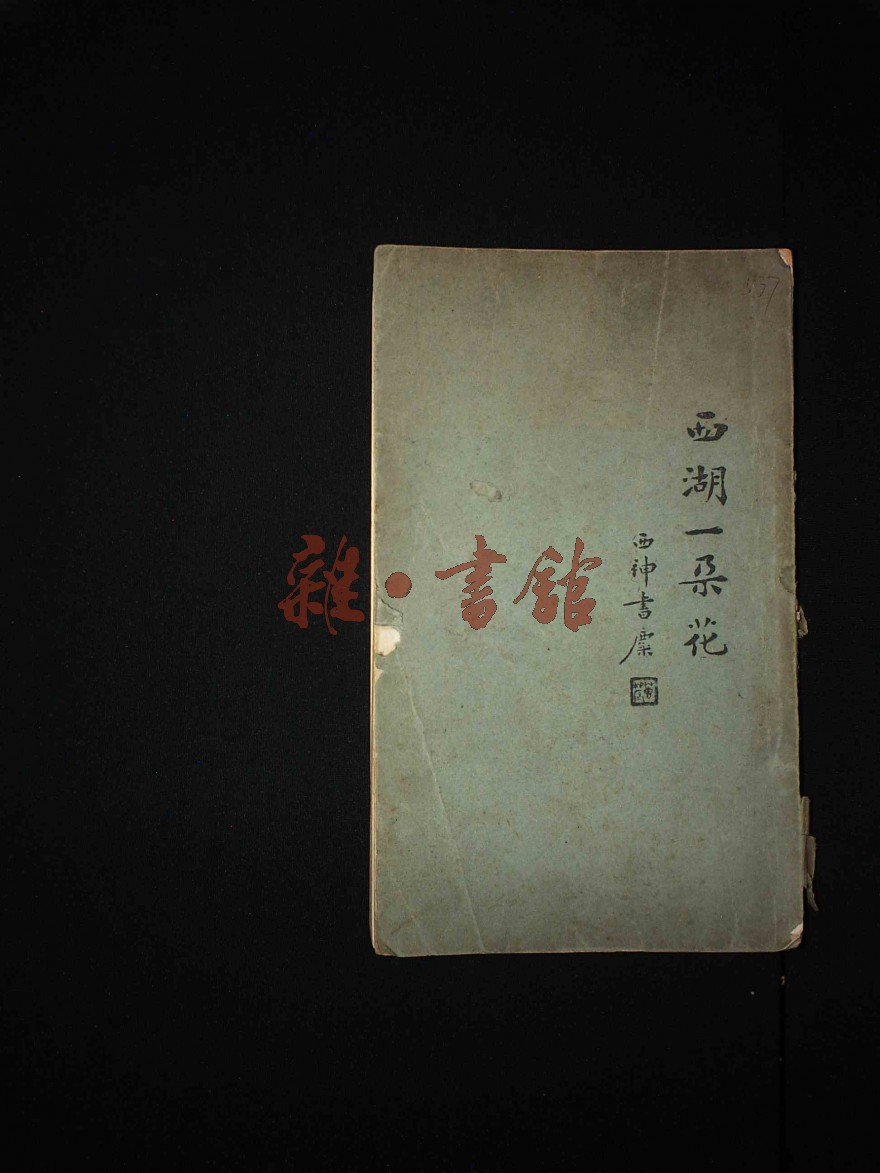 西湖一朵花
西神書麋
雜·書館